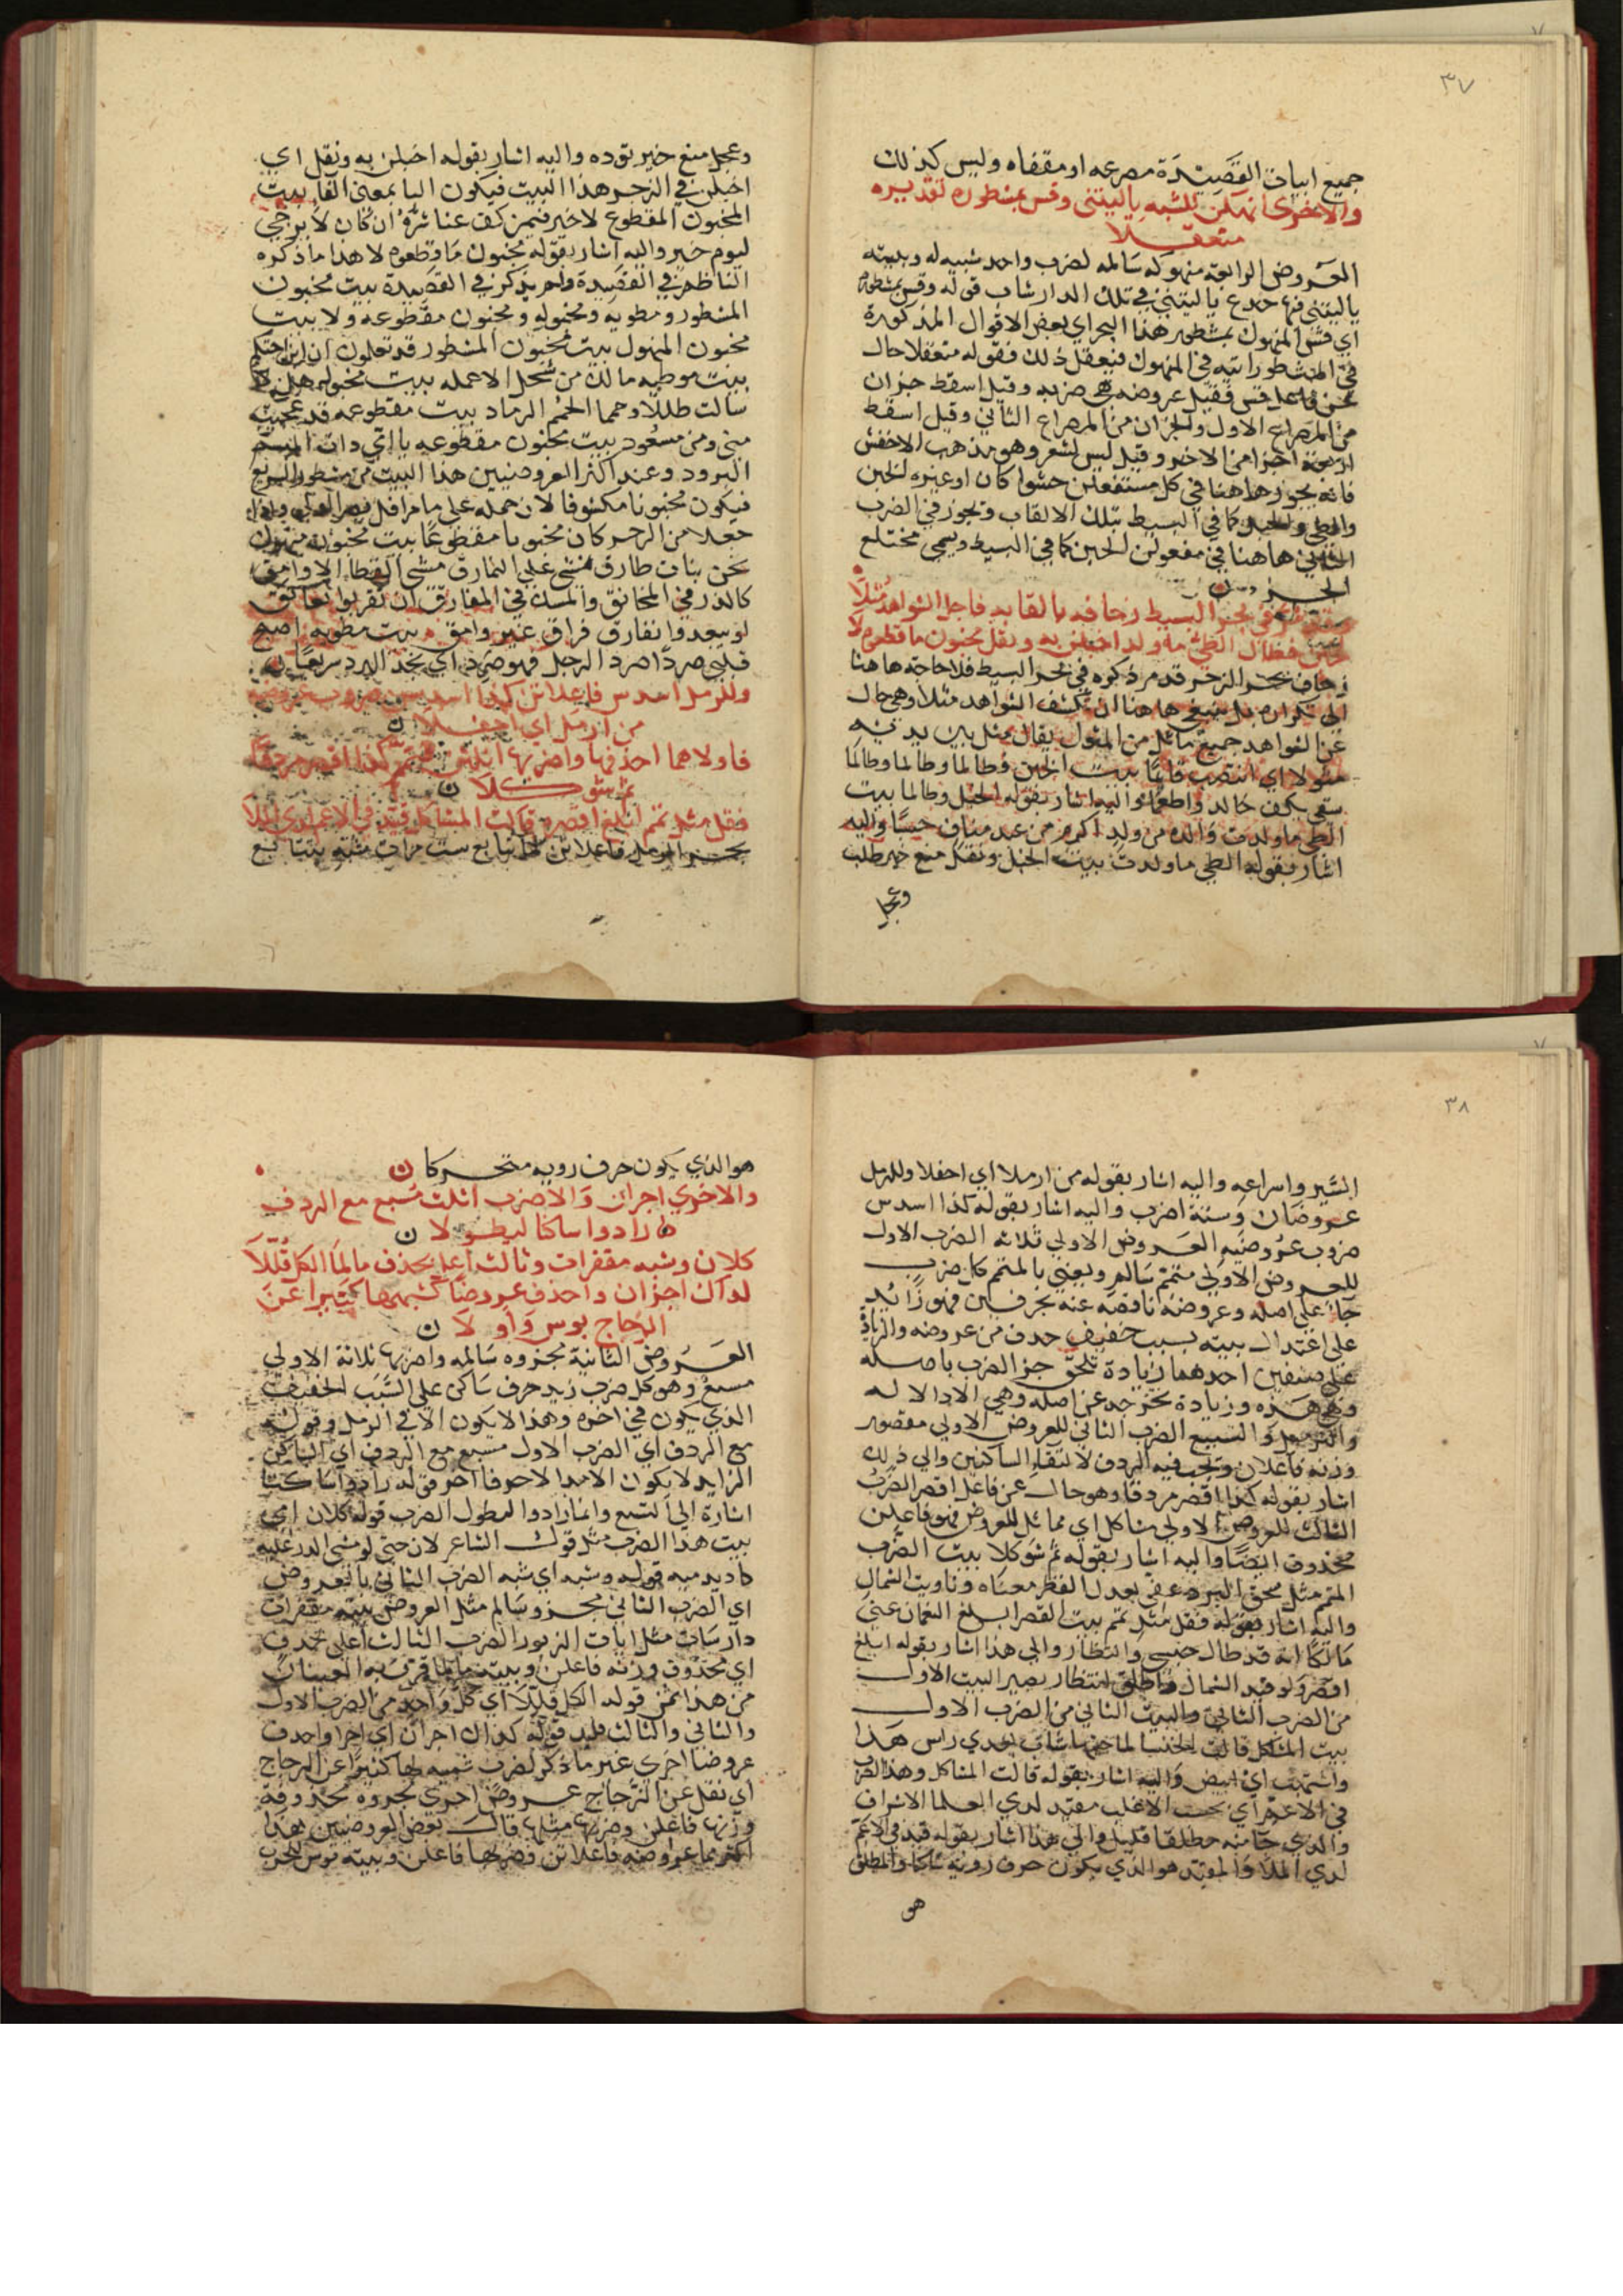 ٣٧
جميع ابيات القصيدة مصرعه او مقفاه وليس كذلك
والاخرى نهكن للشبه ياليتني وقس بمشطوره تقديره
متعقلا
العروض الرابعة منهوكه سالمه لضرب واحد شبيه له وبيته
ياليتني فيها جذع ياليتني في تلك الدار شاب قوله وقس بمشطوره
اي قس المنهوك بمشطور هذا البحر اي بعض الاقوال المذكورة
في المشطور اتيه في المنهوك فتعقل ذلك فقوله متعقلا حال
عن فاعل قس فقيل عروضه هي ضربه وقيل اسقط جزان
من المصراع الاول والجزان من المصراع الثاني وقيل اسقط
اربعة اجزا من الاخر وقيل ليس لشعر وهو مذهب الاخفش
فانه يجوز هاهنا في كل مستفعلن حشوا كان او غيره الخبن
والطي والخبل كما في البسيط بتلك الالقاب ويجوز في الضرب
الثاني هاهنا في مفعولن الخبن كما في البسيط ويسمى مختلع
الجز
في بحر البسيط زحافه بالقابه فاجل الشواهد مثلا
فطال الطي ما ولدا اخبلن به ونقل مخبون ما قطعوه لا
زحاف بحر الزجر قد مر ذكره في بحر البسيط فلا حاجة هاهنا
الى تكراره بل ينبغي هاهنا ان تكشف الشواهد مثلا وهي حال
عن الشواهد جميع ماثل من المثول يقال مثل بين يديه
مثولا اي انتصب قائما بيت الخبن وطالما وطالما وطالما
سقى بكف خالد واطعما واليه اشار بقوله الخبل وطالما بيت
الطي ما ولدت والدة من ولد اكرم من عبد مناف حسبا واليه
اشار بقوله الطي ما ولدت بيت الخبل ونقل منع خير طلب
وعجل
وعجل منع خير تؤده واليه اشار بقوله اخبلن به ونقل اي
اخبلن في الزجر هذا البيت فيكون البا بمعنى الفا بيت
المخبون المقطوع لا خير فيمن كف عنا شره ان كان لا يرجى
ليوم خير واليه اشار بقوله مخبون ما قطعوه لا هذا ما ذكره
الناظم في القصيدة ولم يذكر في القصيدة بيت مخبون
المشطور ومطويه ومخبوله ومخبون مقطوعه ولا بيت
مخبون المنهوك بيت مخبون المشطور قد تعلمون ان
بيت موطيه مالك من شحل الا عمله بيت مخبوله هل
سالت طللا وحمما الحمم الرماد بيت مقطوعه قد عجبت
مني ومن مسعود بيت مخبون مقطوعه يا اتي ذات
البرود وعند اكثر العروضيين هذا البيت من مشطور السريع
فيكون مخبونا مكشوفا لان حمله على ما مر اقل واذا
جعلا من الرجز كان مخبونا مقطوعا بيت مخبون منهوك
نحن بنات طارق نمشي على النمارق مشي القطا الاوامق
كالدر في المخانق والمسك في المفارق ان تقربوا نعانق
او تبعدوا نفارق فراق غير وامق بيت مطويه اصبح
قلبي صردا صرد الرجل فهو صرد اي يجد البرد سريعا
وللرمل اسدس فاعلاتن كذا اسدس ضروب عروضه
من ارمل اي اجفلا
فاولاهما احذفها واضربها متمم كذا اقصر مردفا
ثم شوكلا
فقل مثل تمم ابلغ اقصر وقالت المشاكل قيد في الاعم لدى الملا
بحر الرمل فاعلاتن ست مرات مشبه بتتابع
٣٨
السير واسراعه واليه اشار بقوله من ارملا اي اجفلا وللرمل
عروضان وستة اضرب واليه اشار بقوله كذا اسدس
ضروب عروضيه العروض الاولى ثلاثه الضرب الاول
للعروض الاولى متمم سالم ويعني بالمتمم كل ضرب
جا على اصله وعروضه ناقصة عنه بحرفين فهو زائد
على اعتدال بيته بسبب خفيف حذف من عروضه والزيادة
على صنفين احدهما زيادة تلحق جز الضرب باصله
وهي هذه وزيادة تخرجه عن اصله وهي الاذالا له
والترفيل والتسبيغ الضرب الثاني للعروض الاولى مقصور
وزنه فاعلان ويجب فيه الردف لالتقاء الساكنين والى ذلك
اشار بقوله كذا اقصر مردفا وهو حال عن فاعل اقصر الضرب
الثالث للعروض الاولى مشاكل اي مماثل للعروض فهو فاعلن
محذوف ايضا واليه اشار بقوله ثم شوكلا بيت الضرب
المتمم مثل سحق البرد عفى بعدك القطر معناه وتاويب الشمال
واليه اشار بقوله فقل مثل تمم بيت القصر ابلغ النعمان عني
مالكا انه قد طال حبسي وانتظار والى هذا اشار بقوله ابلغ
اقصر ولو قيد الشمال واطلق انتظار يصير البيت الاول
من الضرب الثاني والبيت الثاني من الضرب الاول
بيت المشاكل قالت الخنسا لما جئتها شاب بعدي راس هذا
واشتهب اي ابيض واليه اشار بقوله قالت المشاكل وهذا الضرب
في الاعم اي بحسب الاغلب مقيد لدى العلما الاشراف
والذي جا منه مطلقا قليل والى هذا اشار بقوله قيد في الاعم
لدى الملا والمقيد هو الذي يكون حرف رويه ساكنا والمطلق
هو
هو الذي يكون حرف رويه متحركا
والاخرى اجزان والاضرب اثلث مسبع مع الردف
زادوا ساكنا ليطولا
كلان وشبه مقفرات وثالث اعل بحذف مالما الكل قللا
لدا ان اجزان واحذف عروضا كشبهها كثيرا عن
الزجاج بوس واولا
العروض الثانية مجزوه سالمه واضربها ثلاثة الاولى
مسبغ وهو كل ضرب زيد حرف ساكن على السبب الخفيف
الذي يكون في اخره وهذا لا يكون الا في الرمل وقوله
مع الردف اي الضرب الاول مسبع مع الردف اي الساكن
الزايد لا يكون الا مدا لاحوفا اخر قوله زادوا ساكنا
اشارة الى التسبع وانما زادوا لطول الضرب قوله كلان اي
بيت هذا الضرب مثل قول الشاعر لان حتى لو مشى الذر عليه
كاد يدميه قوله وشبه اي شبه الضرب الثاني بالعروض
اي الضرب الثاني مجزو سالم مثل العروض بيته مقفرات
دارسات مثل ايات الزبور الضرب الثالث اعل بحذف
اي محذوف وزنه فاعلن وبيته مالما قرت به العينان
من هذا ثمن قوله الكل قللا اي كل واحد من الضرب الاول
والثاني والثالث قليل قوله كذاك اجزان اي اجزا واحذف
عروضا اخرى غير ما ذكر لضرب شبيه لها كثيرا عن الزجاج
اي نقل عن الزجاج عروض اخرى مجزوه محذوفة
وزنها فاعلن وضربها مثلها قال بعض العروضيين هذا
اكثر مما عروضه فاعلاتن وضربها فاعلن وبيته بوس للحرب